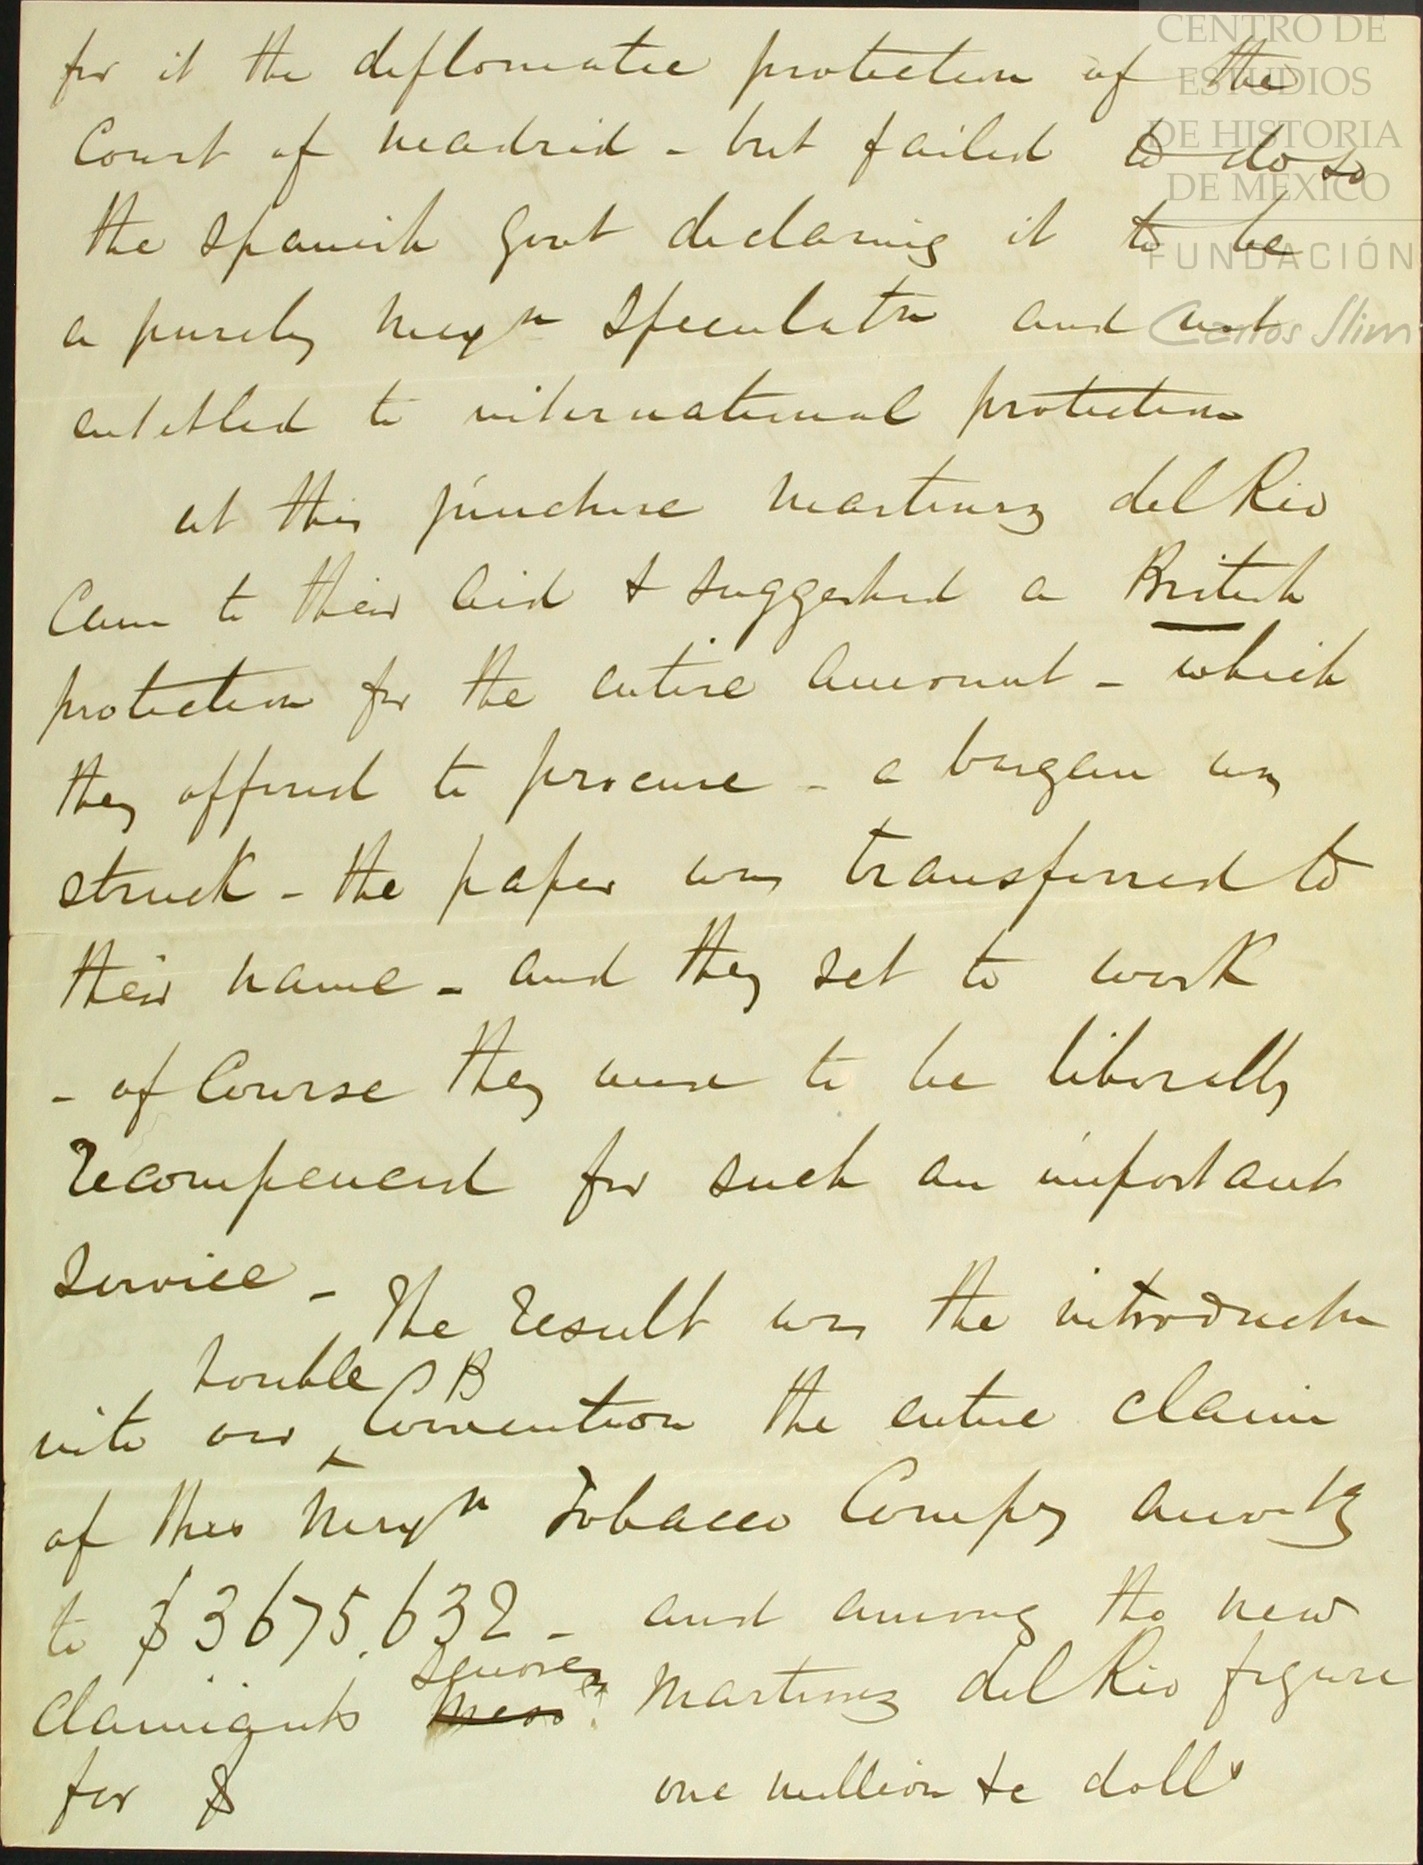 CENTRO DE
ESTUDIOS
DE HISTORIA
DE MÉXICO
FUNDACIÓN
Carlos Slim
for it the diplomatic protection of the
Court of Madrid - but failed to do so
the Spanish Govt declaring it to be
a purely Mexn speculatn and not
entitled to international protection
at this juncture Martinez del Rio
came to their aid & suggested a British
protection for the entire amount - which
they offered to procure - a bargain was
struck - the paper was transferred to
their name - and they set to work
- of course they were to be liberally
recompensed for such an important
service - The result was the introductn
double B
into our Convention the entire claim
of this Mexn Tobacco Compy amountg
to $3675.632 - and among the new
Senores
claimants Messrs Martinez del Rio figure
for $ one million &c dolls